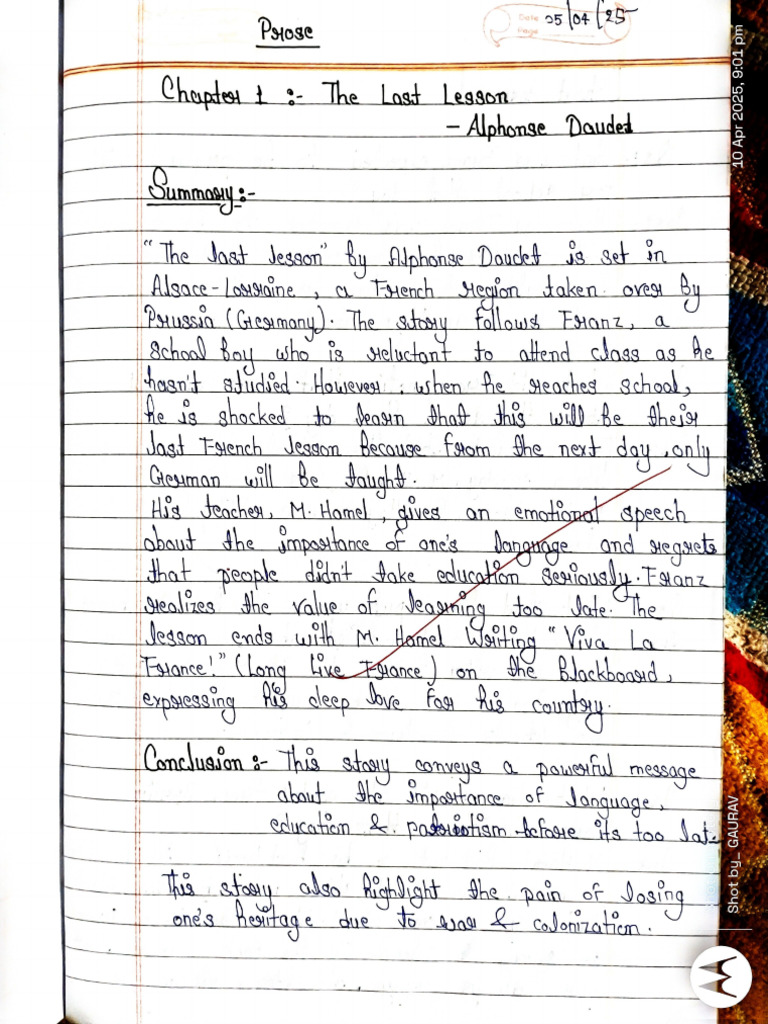 Prose
Date 05/04/25
Page
Chapter 1 :- The Last Lesson
- Alphonse Daudet
Summary:-
"The last lesson" by Alphonse Daudet is set in
Alsace-Lorraine, a French region taken over by
Prussia (Germany). The story follows Franz, a
school boy who is reluctant to attend class as he
hasn't studied. However, when he reaches school,
he is shocked to learn that this will be their
last French lesson because from the next day, only
German will be taught.
His teacher, M. Hamel, gives an emotional speech
about the importance of one's language and regrets
that people didn't take education seriously. Franz
realizes the value of learning too late. The
lesson ends with M. Hamel Writing "Viva La
France!" (Long Live France) on the Blackboard,
expressing his deep love for his country.
Conclusion :- This story conveys a powerful message
about the importance of language,
education & patriotism before its too late
This story also highlight the pain of losing
one's heritage due to war & colonization.
10 Apr 2025, 9:01 pm
Shot by_ GAURAV